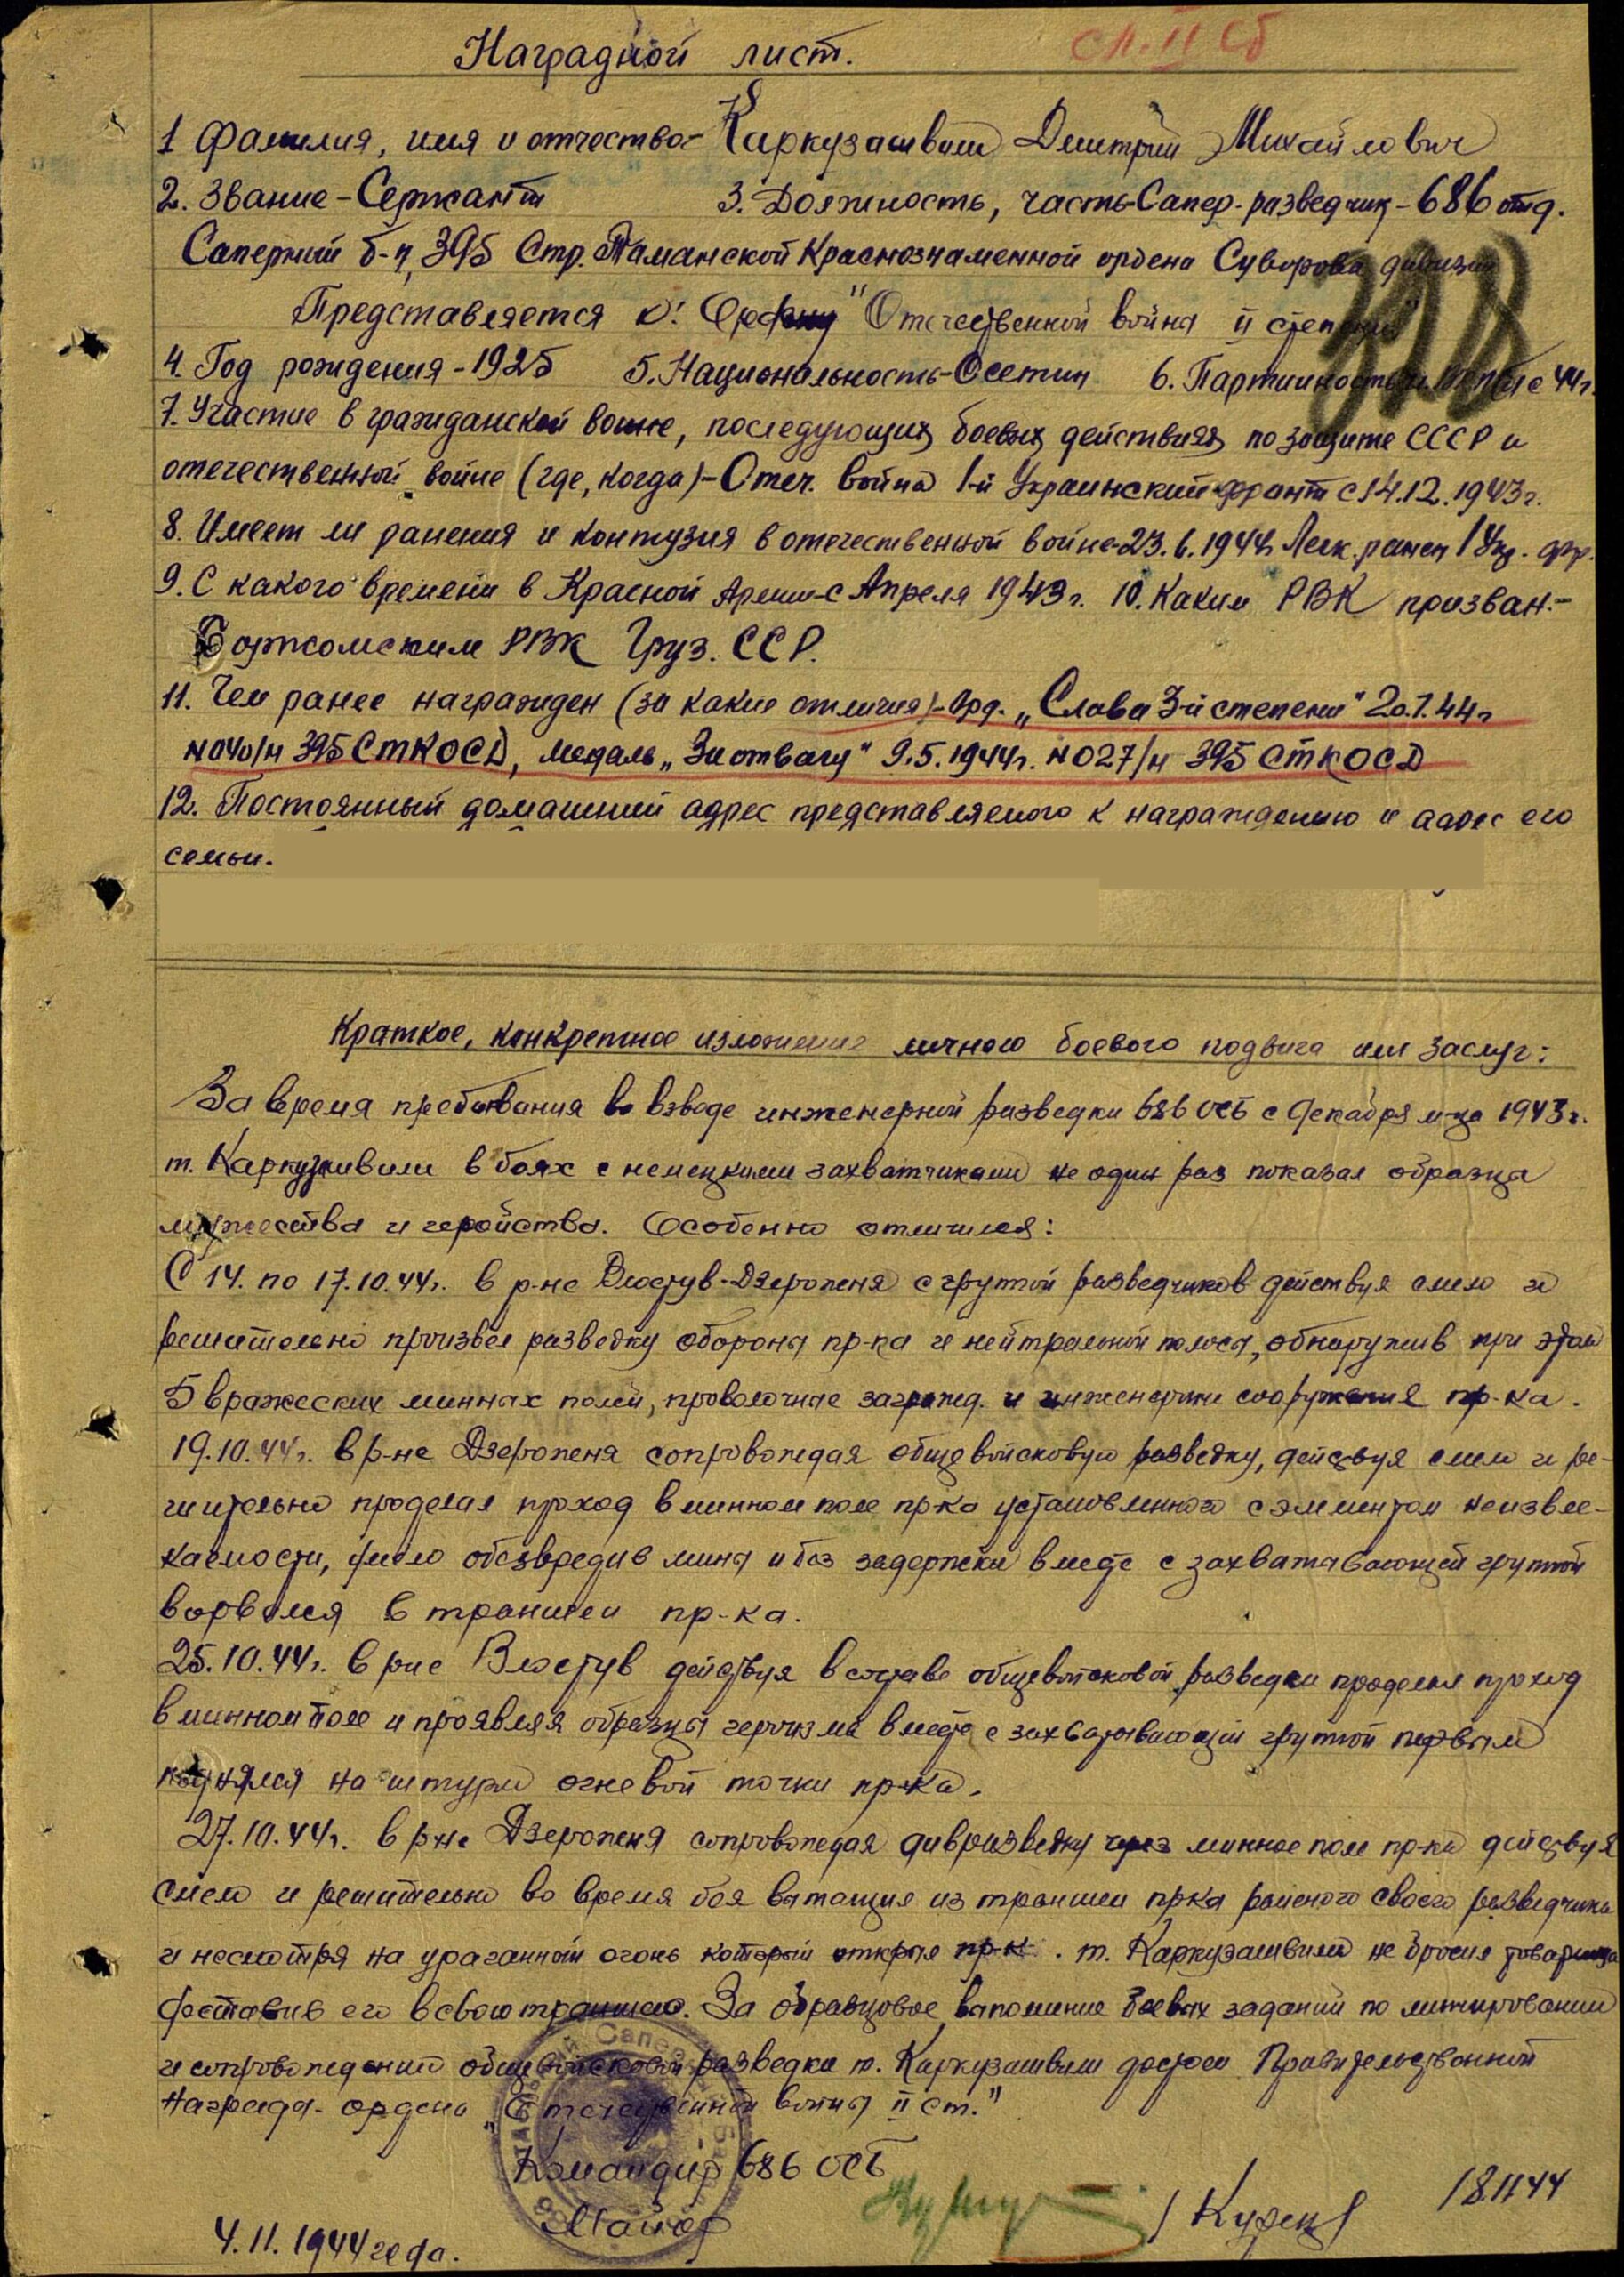 Наградной лист.
1 Фамилия, имя и отчество- Каркузашвили Дмитрий Михайлович
2. Звание - Сержант 3. Должность, часть-Сапер-разведчик-686 отд.
Саперный б-н, 395 Стр. Таманской Краснознаменной ордена Суворова дивизии
Представляется к: Ордену "Отечественной война II степени"
4. Год рождения-1925 5. Национальность-Осетин 6. Партийность 44г.
7. Участие в гражданской войне, последующих боевых действиях по защите СССР и
отечественной войне (где, когда)-Отеч. война 1-й Украинский фронт с 14.12.1943г.
8. Имеет ли ранения и контузия в отечественной войне-23.6.1944г Легк. ранен 1 Укр. фр.
9. С какого времени в Красной Армии-с Апреля 1943г. 10. Каким РВК призван.-
Боржомским РВК Груз. ССР.
11. Чем ранее награжден (за какие отличия)-Орд. „Слава 3й степени" 20.7.44г
N040/н 395 СТКОСД, медаль „За отвагу" 9.5.1944г. N027/н 395 СТКОСД
12. Постоянный домашний адрес представляемого к награждению и адрес его
семьи.
Краткое, конкретное изложение личного боевого подвига или заслуг:
За время пребывания во взводе инженерной разведки 686 ОСБ с Декабря м-ца 1943г.
т. Каркузашвили в боях с немецкими захватчиками не один раз показал образца
мужества и геройства. Особенно отличился:
С 14. по 17.10.44г. в р-не Влостув-Дзеропеня с группой разведчиков действуя смело и
решительно произвел разведку оборона пр-ка и нейтральной полоса, обнаружив при этом
5 вражеских минных полей, проволочные загражд. и инженерные сооружения пр-ка.
19.10.44г. в р-не Дзеропеня сопровождая общевойсковую разведку, действуя смело и ре-
шительно проделал проход в минном поле пр-ка установленного с элементом неизвле-
каемости, смело обезвредив мина и без задержки вместе с захватавающей группой
ворвался в траншеи пр-ка.
25.10.44г. в р-не Влостув действуя в составе общевойсковой разведки проделал проход
в минном поле и проявляя образца героизма вместе с захватывающей группой первым
поднялся на штурм огневой точки пр-ка.
27.10.44г. в р-не Дзеропеня сопровождая дивразведку через минное поле пр-ка действуя
смело и решительно во время боя вытащив из траншеи пр-ка раненого своего разведчика
и несмотря на ураганный огонь который открыл пр-к. т. Каркузашвили не бросил товарища
доставив его в свою траншею. За образцовое выполнение боевых заданий по минированию
и сопровождений общевойсковой разведки т. Каркузашвили достоен Правительственной
награда- ордена „Отечественной война II ст."
Командир 686 ОСБ
Майор
4.11.1944 года.
18.11 44